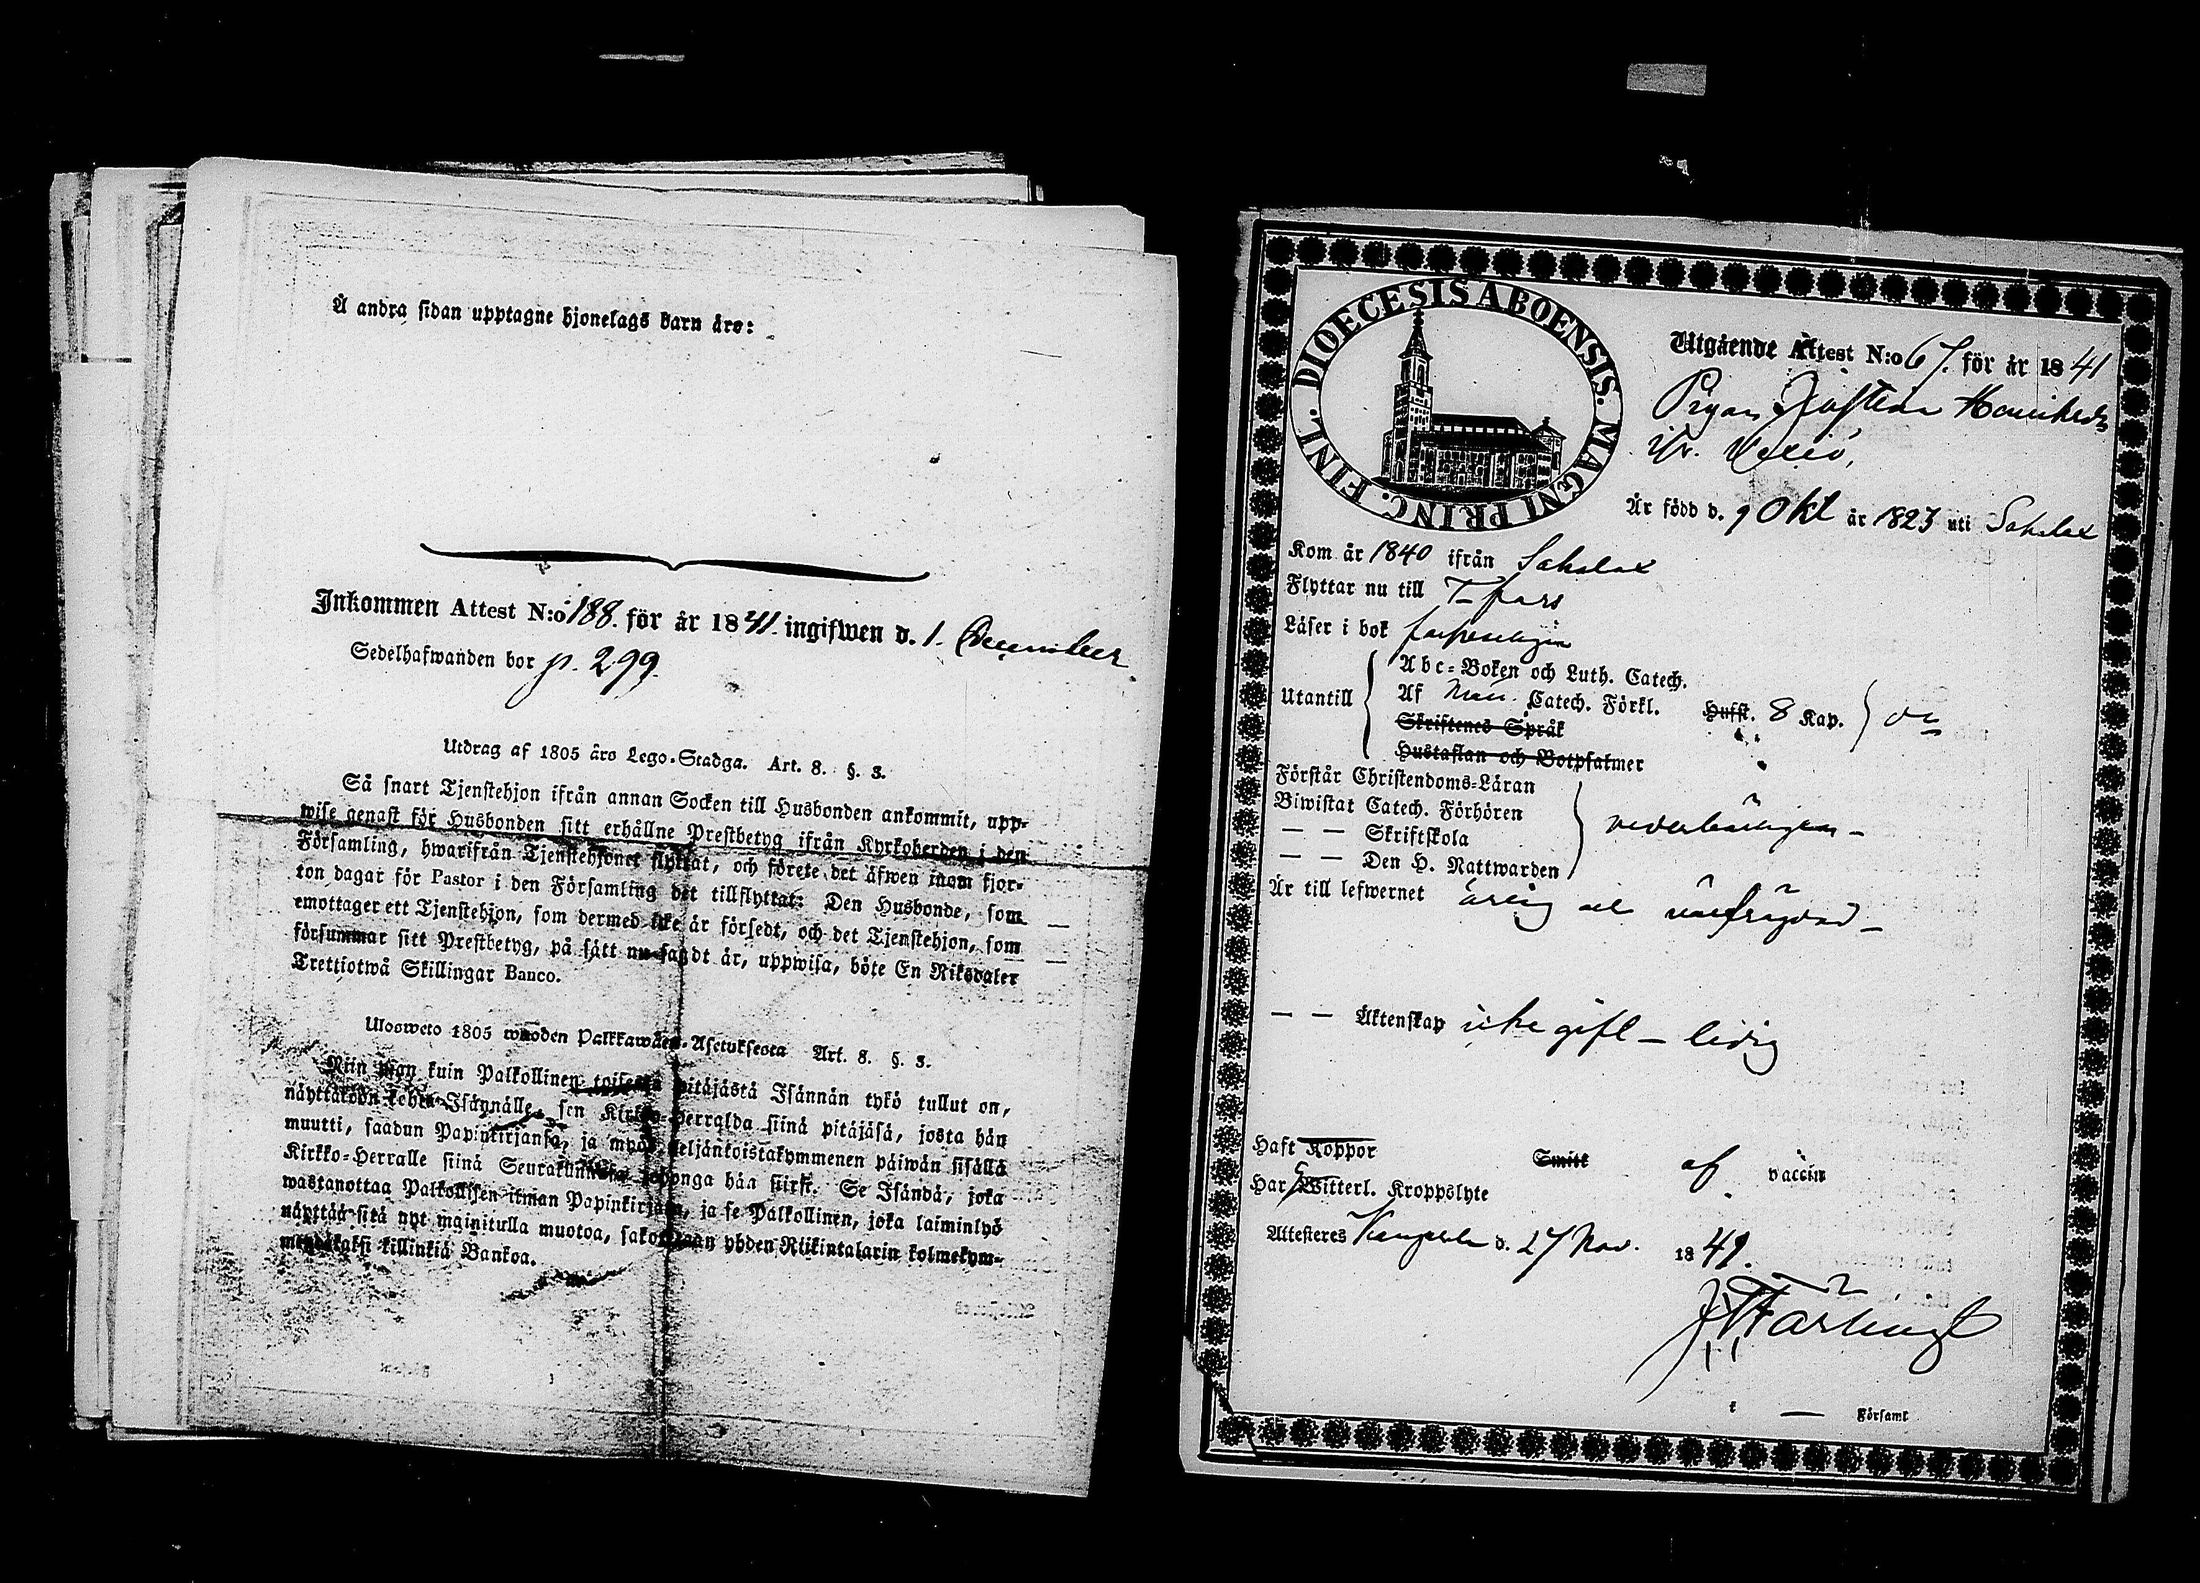 Å andra sidan upptagne hjonelags barn äro:
Inkommen Attest N:o 188. för år 1841. ingifwen d. 1. December
Sedelhafwanden bor p. 299.
Utdrag af 1805 års Lego-Stadga. Art. 8. §. 3.
Så snart Tjenstehjon ifrån annan Socken till Husbonden ankommit, upp-
wise genast för Husbonden sitt erhållne Prestbetyg ifrån Kyrkoherden i den
Församling, hwarifrån Tjenstehjonet flyttat, och förete det äfwen inom fjor-
ton dagar för Pastor i den Församling det tillflyttat: Den Husbonde, som
emottager ett Tjenstehjon, som dermed icke är försedt, och det Tjenstehjon, som
försummar sitt Prestbetyg, på sätt nu sagdt är, uppwisa, böte En Riksdaler
Trettiotwå Skillingar Banco.
Ulosweto 1805 wuoden Palkkawäen-Asetuksesta Art. 8. §. 3.
Niin pian kuin Palkollinen toisesta pitäjästä Isännän tykö tullut on,
näyttäköön kohta Isännälle, sen Kirkko-Herralda siinä pitäjäsä, josta hän
muutti, saadun Papinkirjansa, ja myös neljäntoistakymmenen päiwän sisällä
Kirkko-Herralle siinä Seurakunnasa johonga hän siirsi. Se Isändä, joka
wastanottaa Palkollisen ilman Papinkirjata, ja se Palkollinen, joka laiminlyö
näyttää sitä nyt mainitulla muotoa, sakotetaan yhden Riikintalarin kolmekym-
mendäkaksi killinkiä Bankoa.
DIOECESIS ABOENSIS. MAGNI PRINC. FINL.
Utgående Attest N:o 67. för år 1841
Pigan
Är född d. 9 Okt år 1823 uti Sahalax
Kom år 1840 ifrån Sahalax
Flyttar nu till T-fors
Läser i bok
Abc-Boken och Luth. Catech.
Utantill Af Catech. Förkl. Hufst. 8 Kap.
Skriftenes Språk
Hustaflan och Botpsalmer
Förstår Christendoms-Läran
Biwistat Catech. Förhören
— — Skriftskola
— — Den H. Nattwarden
Är till lefwernet ärlig
— — Äktenskap icke gift — ledig
Haft Koppor Smitt af vaccin
Har Witterl. Kroppslyte
Attesteres d. 27 Nov. 1841.
i — Församl